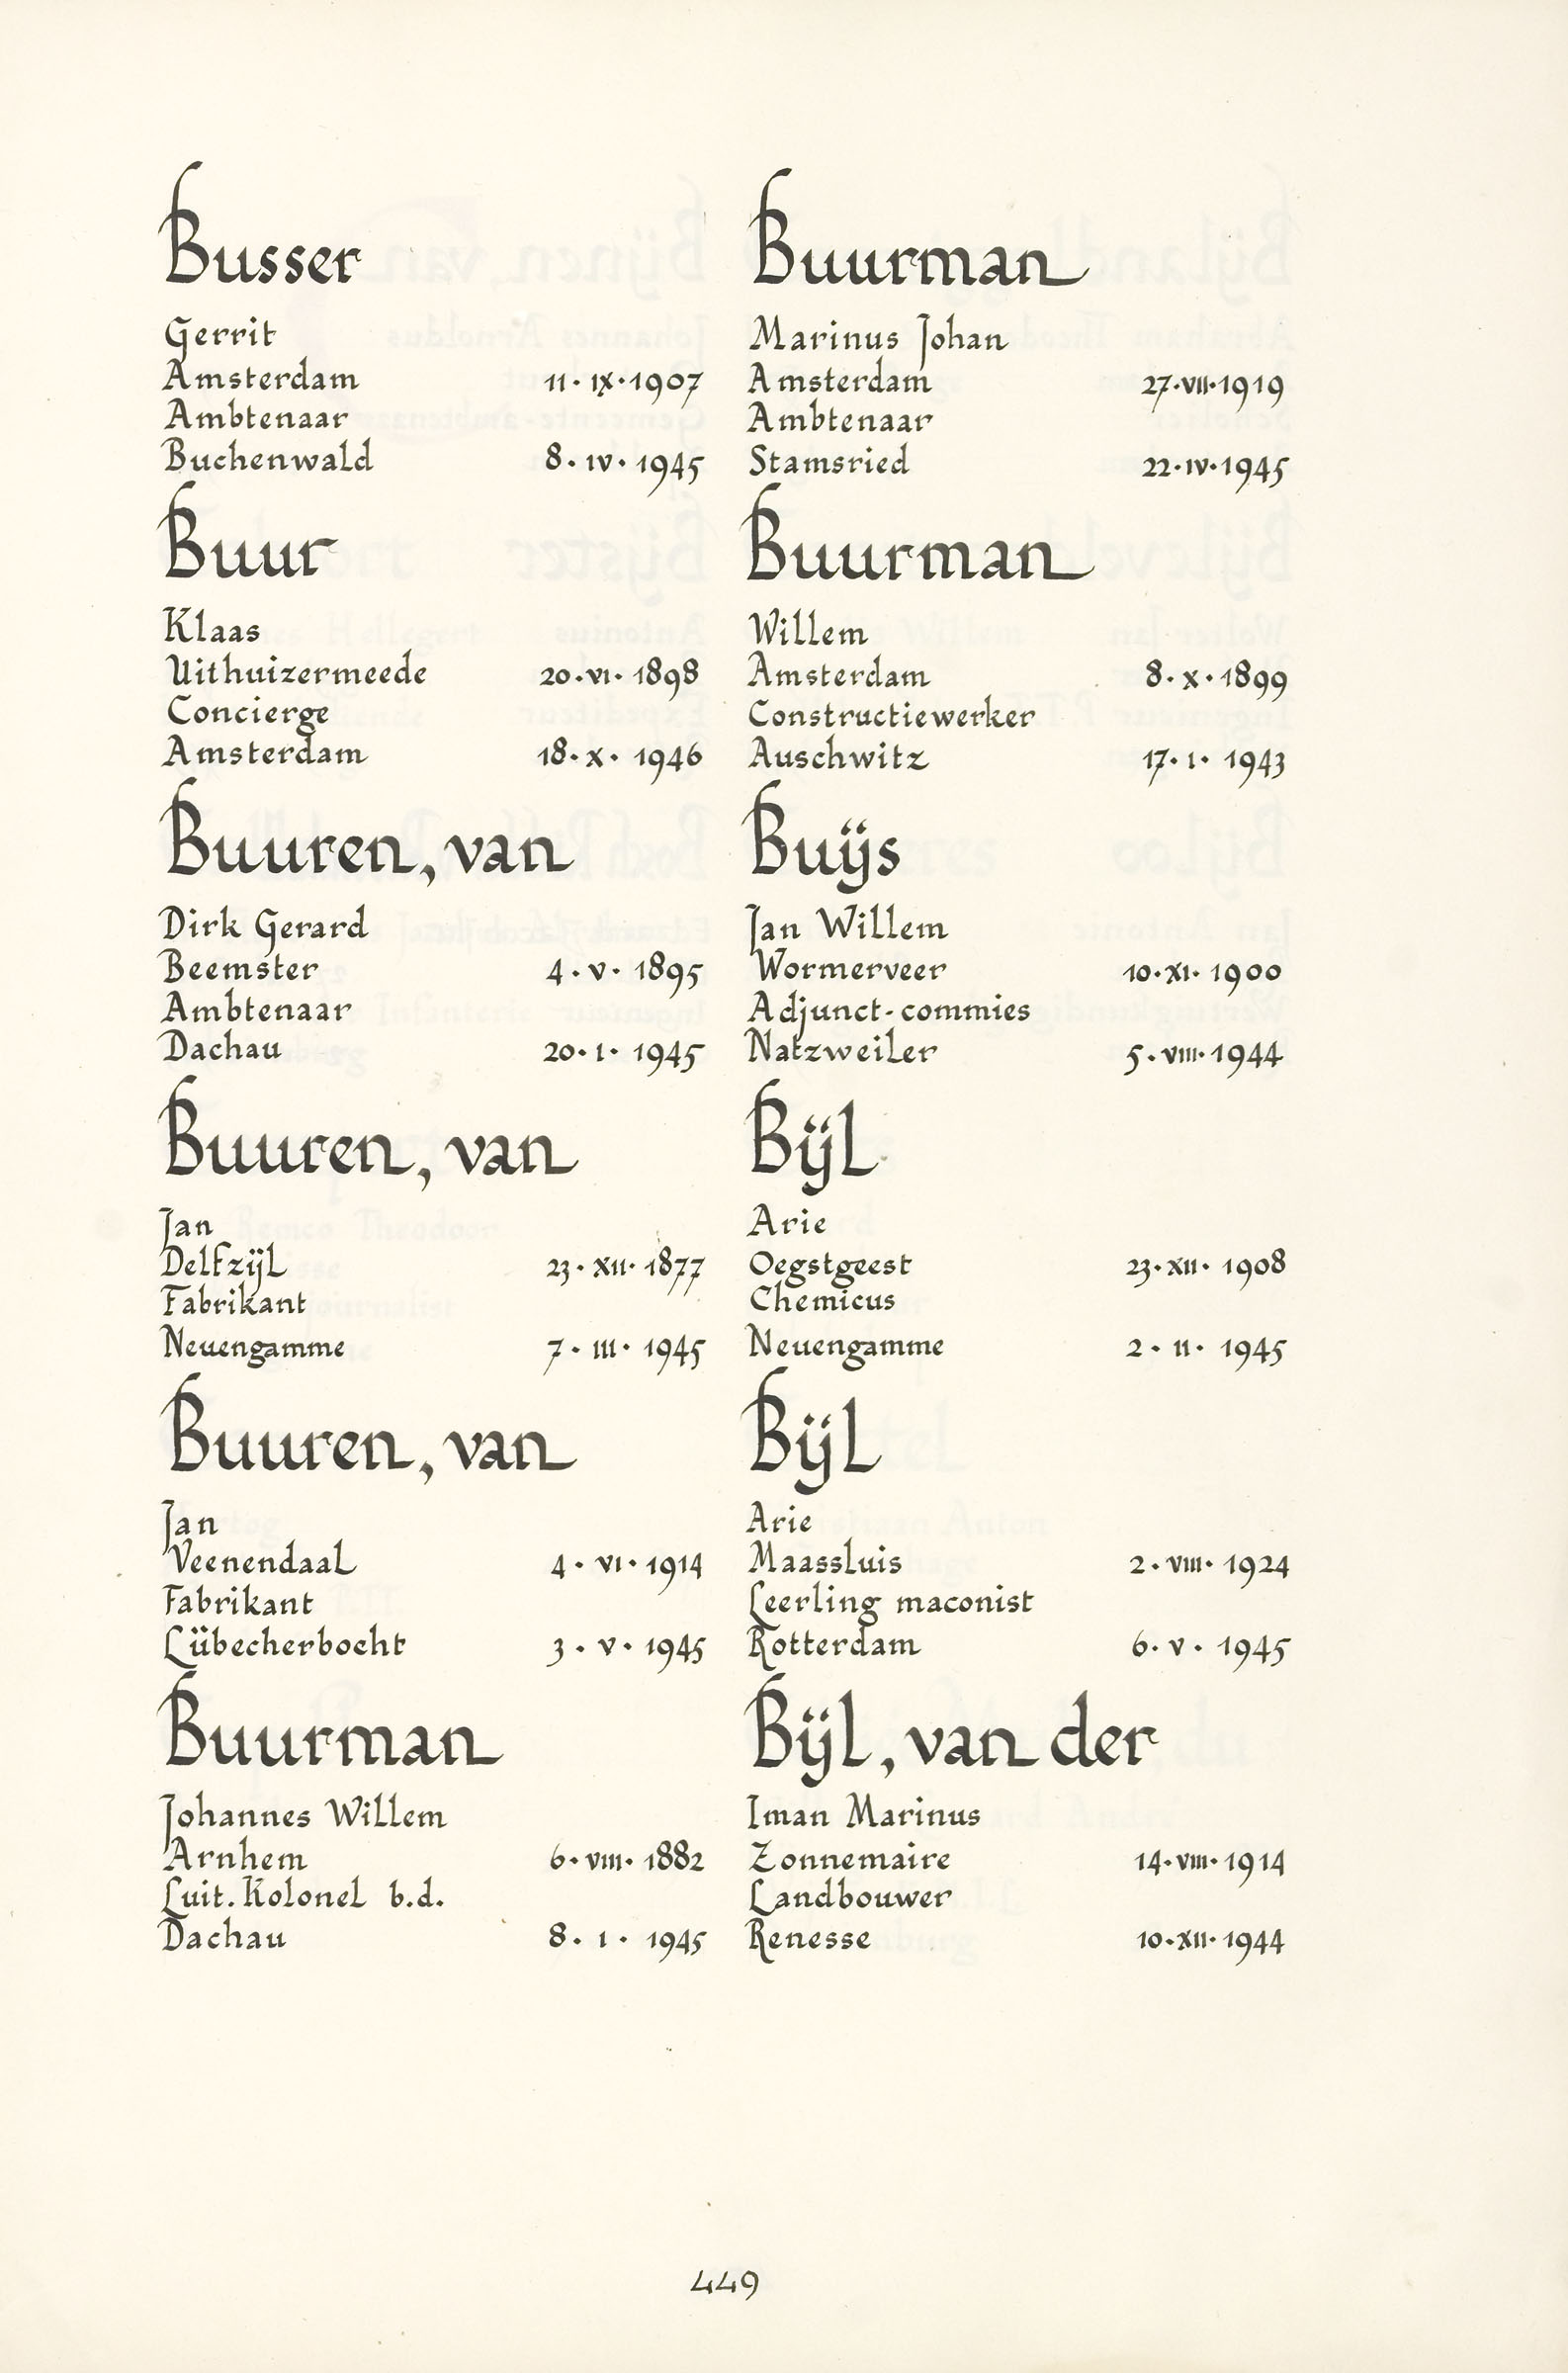 Busser
Gerrit
Amsterdam 11·IX·1907
Ambtenaar
Buchenwald 8·IV·1945
Buur
Klaas
Uithuizermeede 20·VI·1898
Concierge
Amsterdam 18·X·1946
Buuren, van
Dirk Gerard
Beemster 4·V·1895
Ambtenaar
Dachau 20·I·1945
Buuren, van
Jan
Delfzijl 23·XII·1877
Fabrikant
Neuengamme 7·III·1945
Buuren, van
Jan
Veenendaal 4·VI·1914
Fabrikant
Lübecherbocht 3·V·1945
Buurman
Johannes Willem
Arnhem 6·VIII·1882
Luit. Kolonel b.d.
Dachau 8·I·1945
Buurman
Marinus Johan
Amsterdam 27·VII·1919
Ambtenaar
Stamsried 22·IV·1945
Buurman
Willem
Amsterdam 8·X·1899
Constructiewerker
Auschwitz 17·I·1943
Buijs
Jan Willem
Wormerveer 10·XI·1900
Adjunct-commies
Natzweiler 5·VIII·1944
Bijl
Arie
Oegstgeest 23·XII·1908
Chemicus
Neuengamme 2·II·1945
Bijl
Arie
Maassluis 2·VIII·1924
Leerling maconist
Rotterdam 6·V·1945
Bijl, van der
Iman Marinus
Zonnemaire 14·VIII·1914
Landbouwer
Renesse 10·XII·1944
449